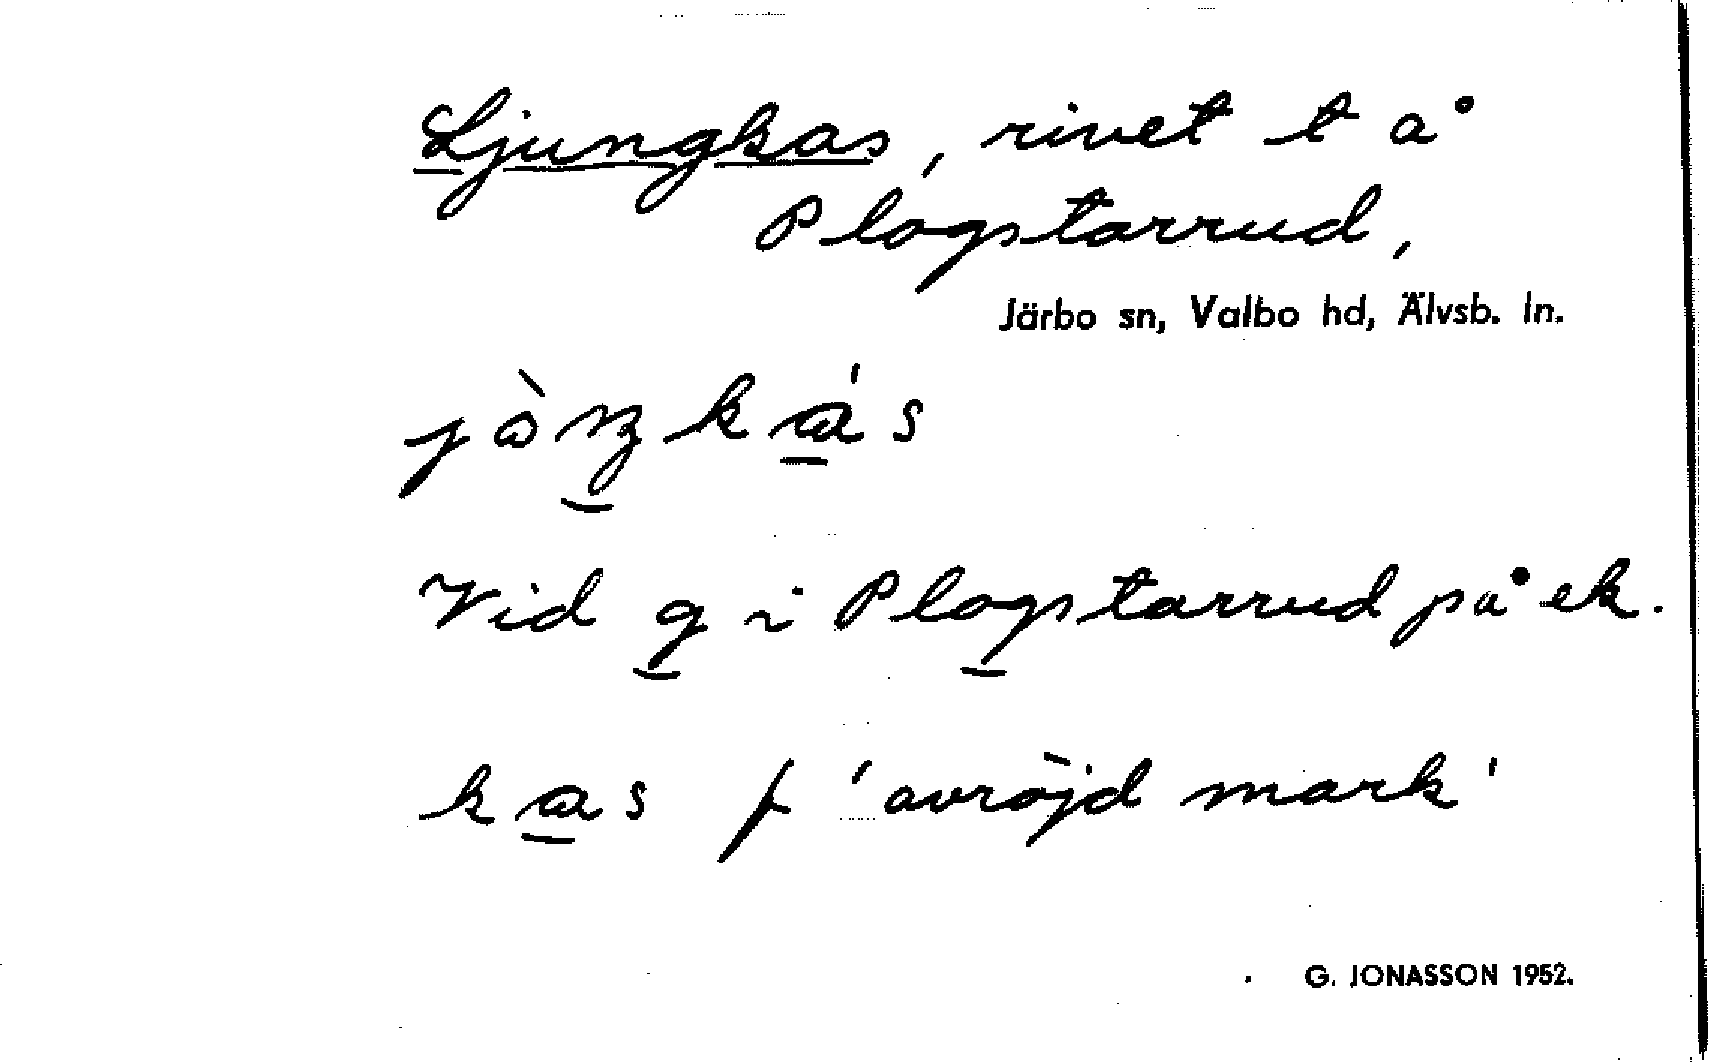 Ljungkas, rivet t å
Plogstarrud,
Järbo sn, Valbo hd, Älvsb. ln.
Vid g i Plogstarrud på ek.
kas f 'avröjd mark'
G. JONASSON 1952.